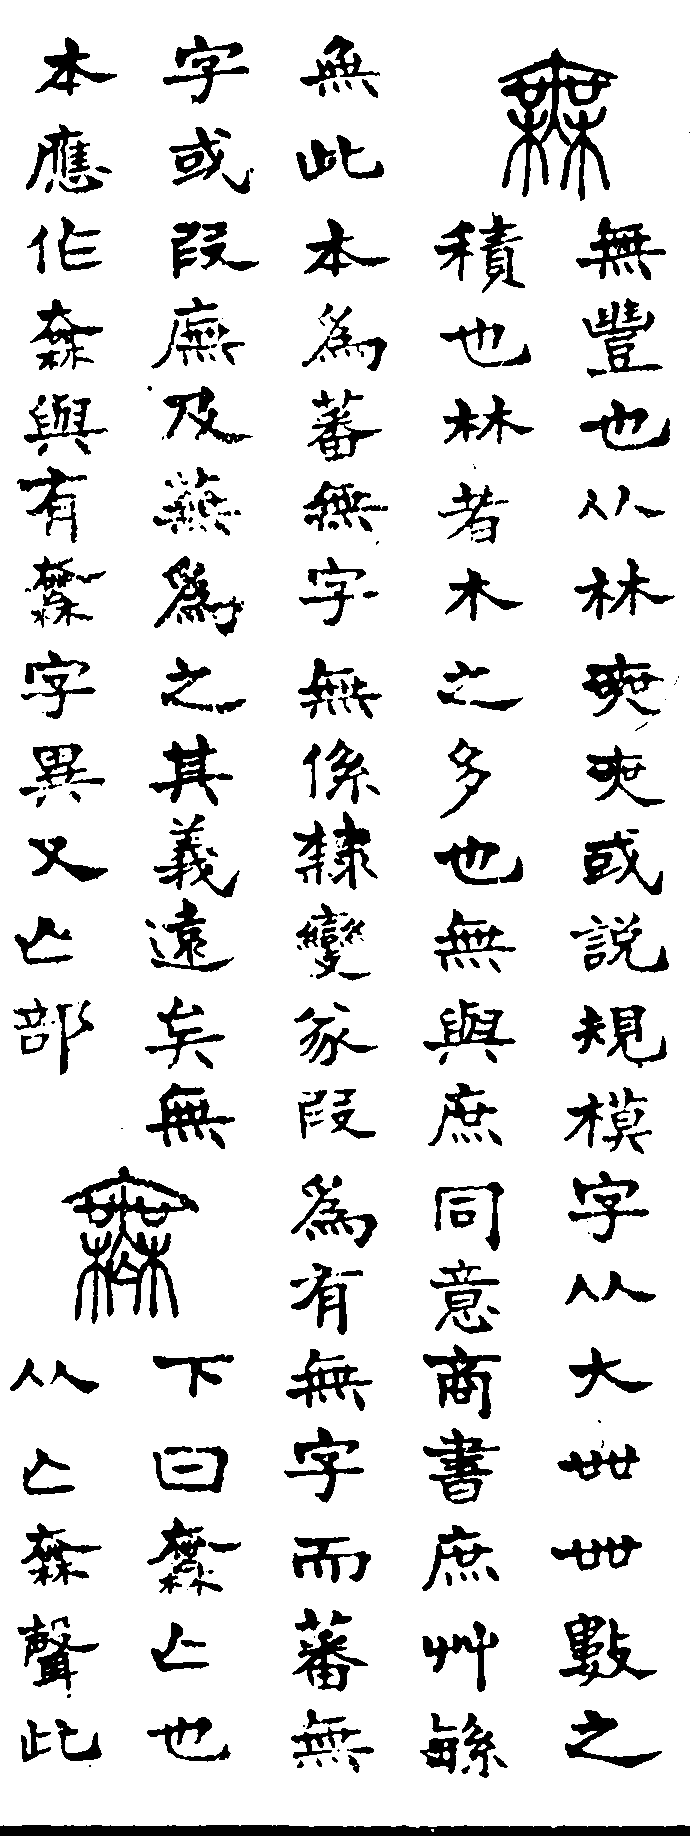 𣞤
無豐也从林𡘲𡘲或說規模字从大卌卌數之
積也林者木之多也無與庶同意商書庶艸緐
無此本為蕃無字無係隸變篆叚為有無字而蕃無
字或叚廡及蕪為之其義遠矣無
本應作𣞤與有𣠮字異又亾部
𣠮
下曰𣠮亾也
从亾𣞤聲此